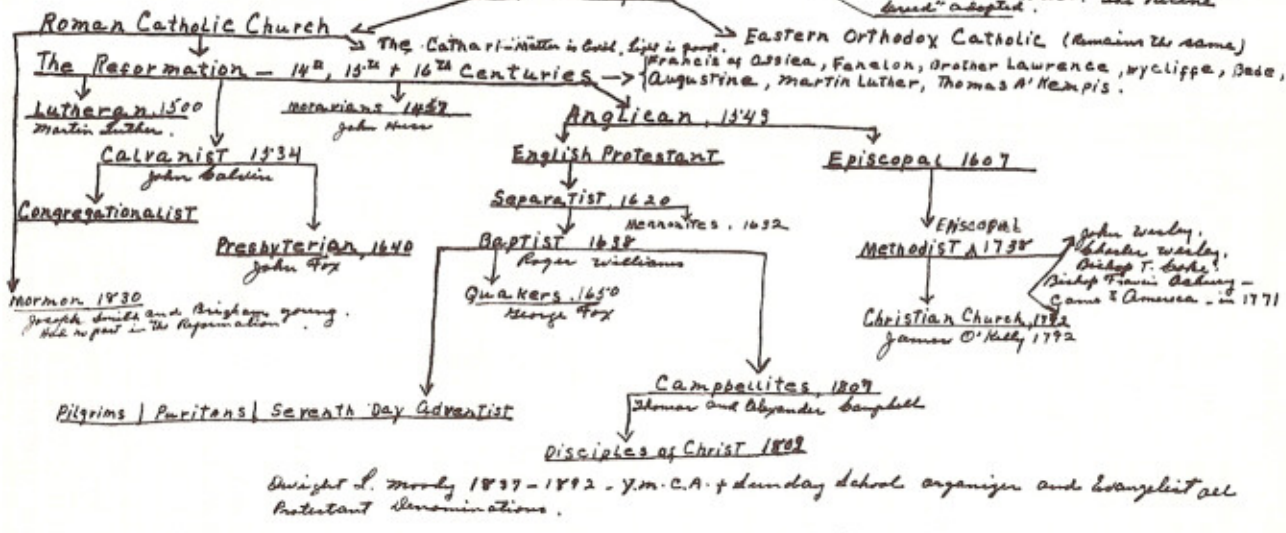 Creed" adopted.
Roman Catholic Church
The Cathari - Matter is evil, light is good.
Eastern Orthodox Catholic (Remains the same)
The Reformation - 14th, 15th + 16th Centuries
Francis of Assiea, Fenelon, Brother Lawrence, Wycliffe, Bede,
Augustine, Martin Luther, Thomas A' Kempis.
Lutheran, 1500
Martin Luther.
Moravians 1457
John Huss
Anglican, 1549
Calvanist 1534
John Calvin
English Protestant
Episcopal 1607
Congregationalist
Separatist, 1620
Mennonites, 1632
Presbyterian, 1640
John Fox
Baptist 1638
Roger Williams
Episcopal
Methodist 1738
John Wesley.
Charles Wesley.
Bishop T. Coke.
Bishop Francis Asbury -
Came to America - in 1771
Quakers, 1650
George Fox
Mormon 1830
Joseph Smith and Brigham Young.
Had no part in the Reformation.
Christian Church, 1792
James O'Kelly 1792
Campbellites, 1809
Thomas and Alexander Campbell
Pilgrims | Puritans | Seventh Day Adventist
Disciples of Christ 1809
Dwight L. Moody 1837-1892 - Y.M.C.A. + Sunday School organizer and Evangelist all
Protestant Denominations.